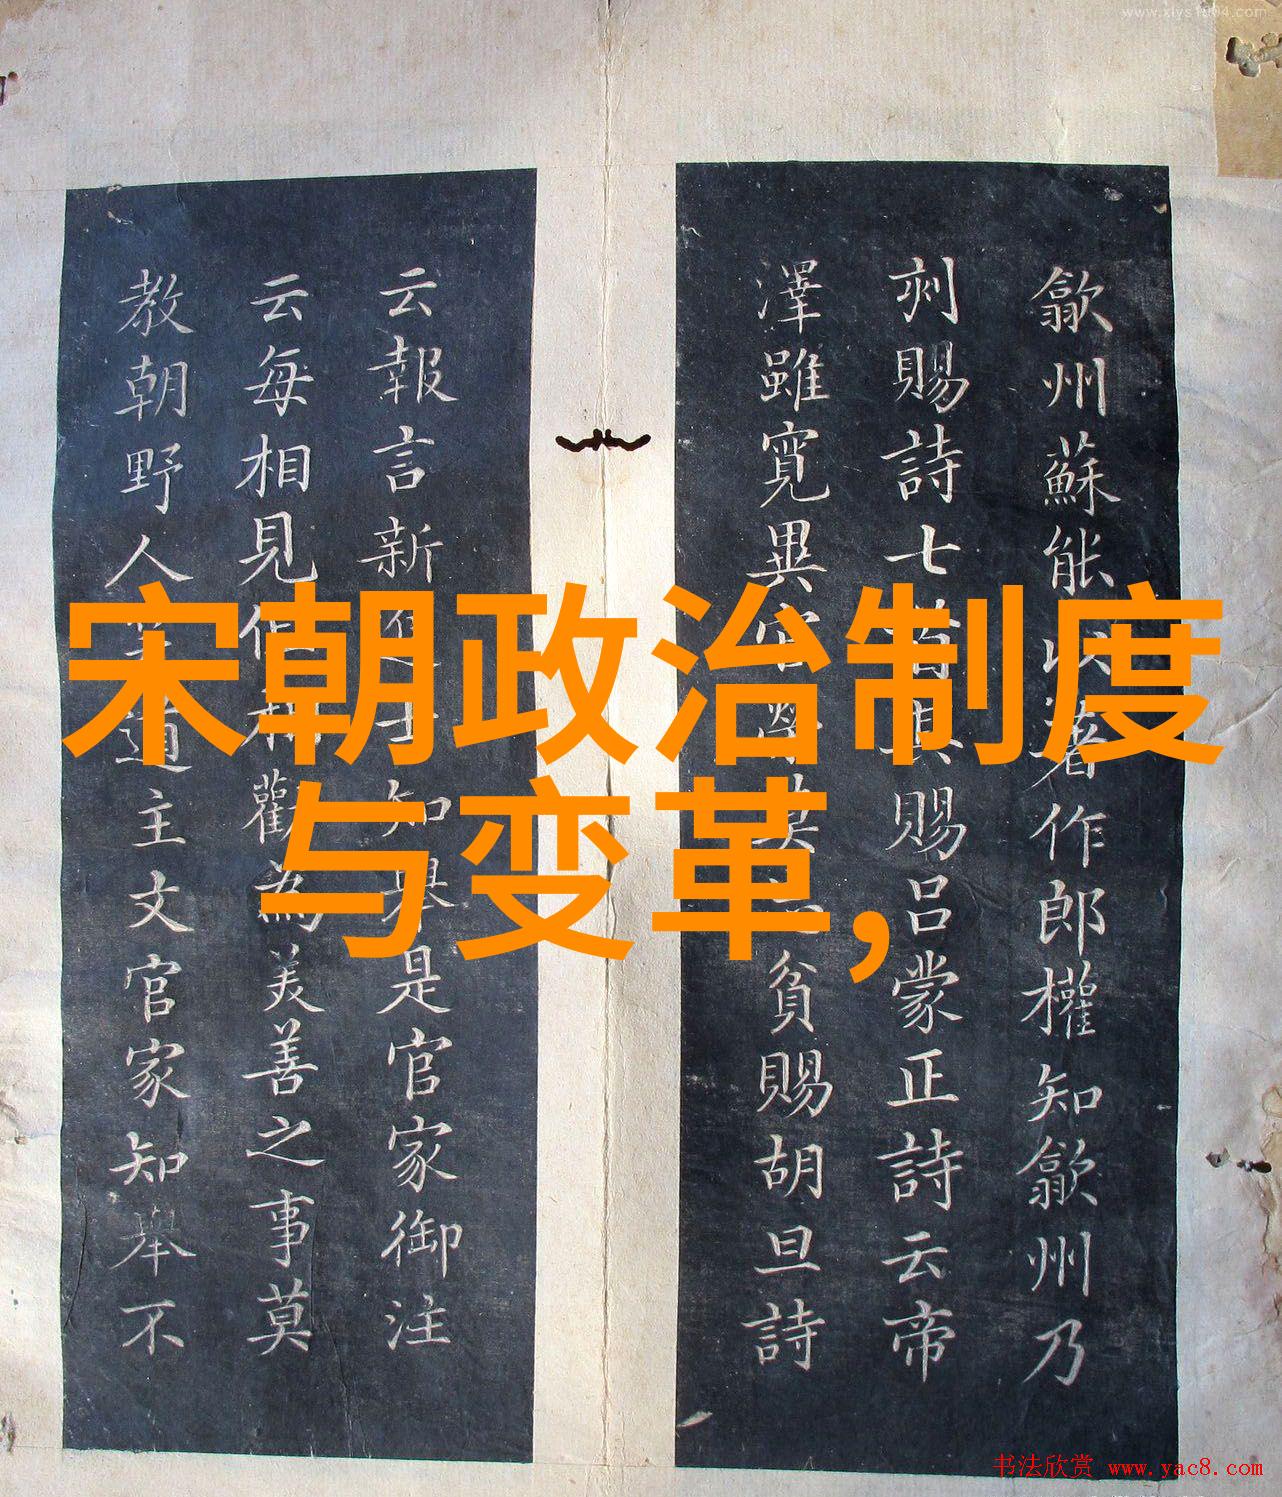 www.xiys1004.com
歙州蘇能以著作郎權知歙州乃
刺賜詩七首其賜呂蒙正詩云帝
澤雖寬異官貧賜胡旦詩
云報言新進士知舉是官家御注
云每相見但相勸為美善之事莫
教朝野人道主文官家知舉不
宋朝政治制度
与变革,
书法欣赏 www.yac8.com